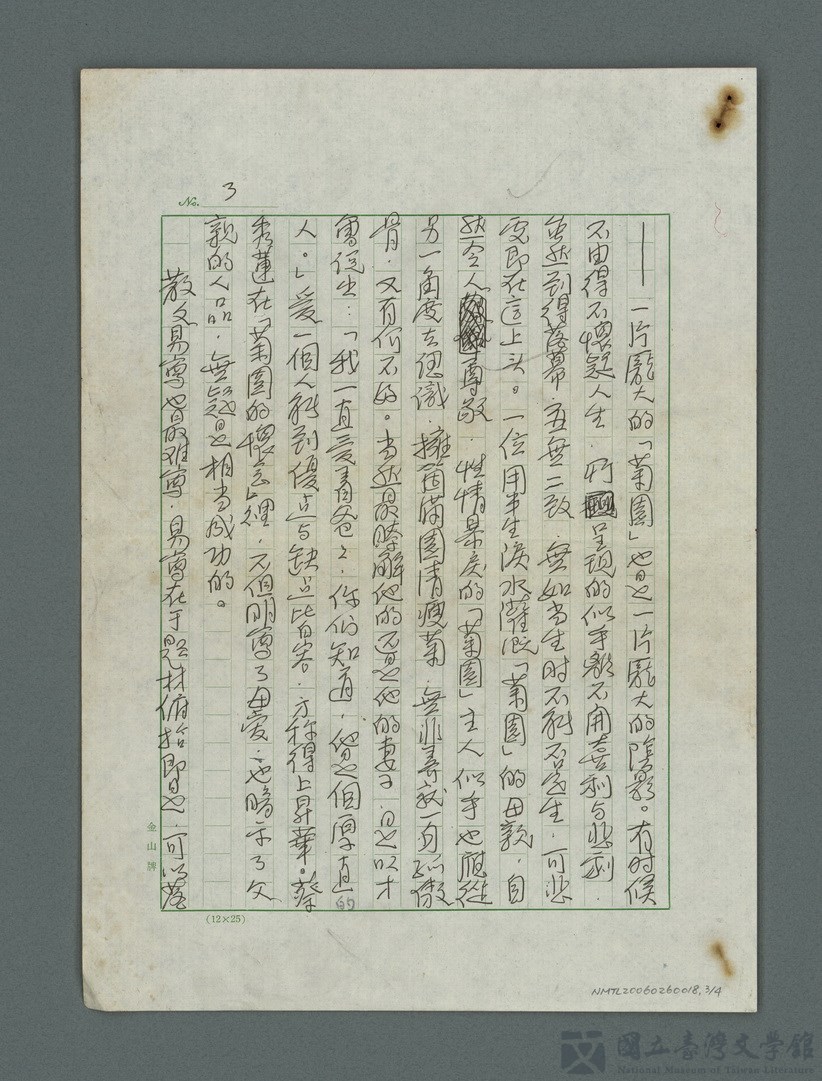 No. 3
——一片龐大的「菊園」也是一片龐大的陰影。有时候
不由得不懷疑人生.所呈現的似乎離不開喜剧与悲剧.
虽然到得落幕.並無二致.無如当生时不能不為生.可悲
處即在這上头。一位用半生淚水灌溉「菊園」的母親,自
然令人尊敬.性情暴戾的「菊園」主人似乎也應從
另一角度去認識.擁有满園清瘦菊.無非養就一身孤傲
骨.又有何不好。当然最瞭解他的還是他的妻子.是以才
會說出:「我一直愛着爸爸.你們知道,他是個厚直的
人。」愛一個人能到優点与缺点比自害.方称得上昇華。蔡
秀蓮在「菊園的懷念」裡.不但明寫了母愛.也暗示了父
親的人品.無疑是相当成功的。
散文易寫也最难寫.易寫在于題材俯拾即是.可以落
金山牌
(12×25)
NMTL20060260018,3/4
國立臺灣文學館
National Museum of Taiwan Literature